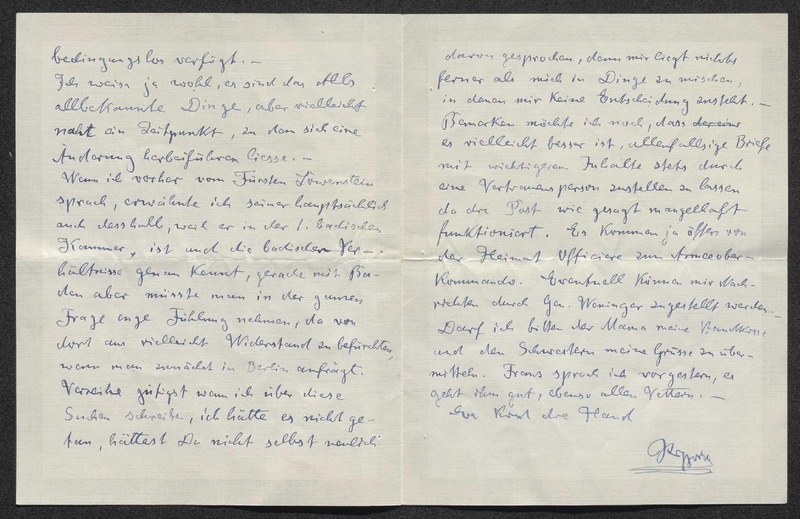 bedingungslos verfügt. –
Ich weiss ja wohl, es sind das Alles
allbekannte Dinge, aber vielleicht
naht ein Zeitpunkt, zu dem sich eine
Änderung herbeiführen liesse. –
Wenn ich vorher vom Fürsten Löwenstein
sprach, erwähnte ich seiner hauptsächlich
auch desshalb, weil er in der 1. badischen
Kammer, ist und die badischen Ver-
hältnisse genau kennt, gerade mit Ba-
den aber müsste man in der ganzen
Frage enge Fühlung nehmen, da von
dort aus vielleicht Widerstand zu befürchten,
wenn man zunächst in Berlin anfrägt.
Verzeihe gütigst wenn ich über diese
Sachen schreibe, ich hätte es nicht ge-
tan, hättest Du nicht selbst neulich
davon gesprochen, denn mir liegt nichts
ferner als mich in Dinge zu mischen,
in denen mir keine Entscheidung zusteht. –
Bemerken möchte ich noch, dass
es vielleicht besser ist, allenfallsige Briefe
mit wichtigerem Inhalte stets durch
eine Vertrauensperson zustellen zu lassen
da die Post wie gesagt mangelhaft
funktioniert. Es kommen ja öfters von
der Heimat Officiere zum Armeeober-
Kommando. Eventuell können mir Nach-
richten durch Gen. Weninger zugestellt werden. –
Darf ich bitten der Mama meine Handküsse
und den Schwestern meine Grüsse zu über-
mitteln. Franz sprach ich vorgestern, es
geht ihm gut, ebenso allen Vettern. –
die Hand